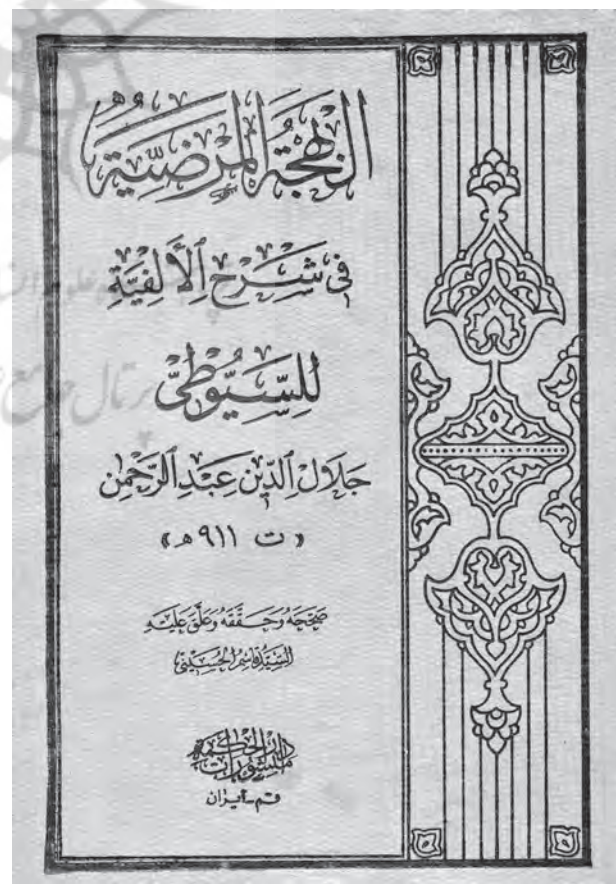 البَهْجَةُ المَرْضِيَّةُ
فِي شَرْحِ الأَلْفِيَّةِ
لِلسُّيُوطِيّ
جَلَالِ الدِّينِ عَبْدِ الرَّحْمٰنِ
« ت ٩١١ هـ »
صَحَّحَهُ وَحَقَّقَهُ وَعَلَّقَ عَلَيْهِ
السَّيِّد قَاسِم الحُسَيْنِي
منشورات دار الحكمة
قم - ايران